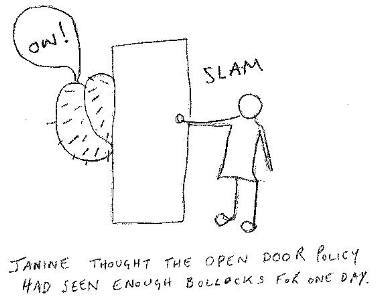 OW!
SLAM
JANINE THOUGHT THE OPEN DOOR POLICY
HAD SEEN ENOUGH BOLLOCKS FOR ONE DAY.